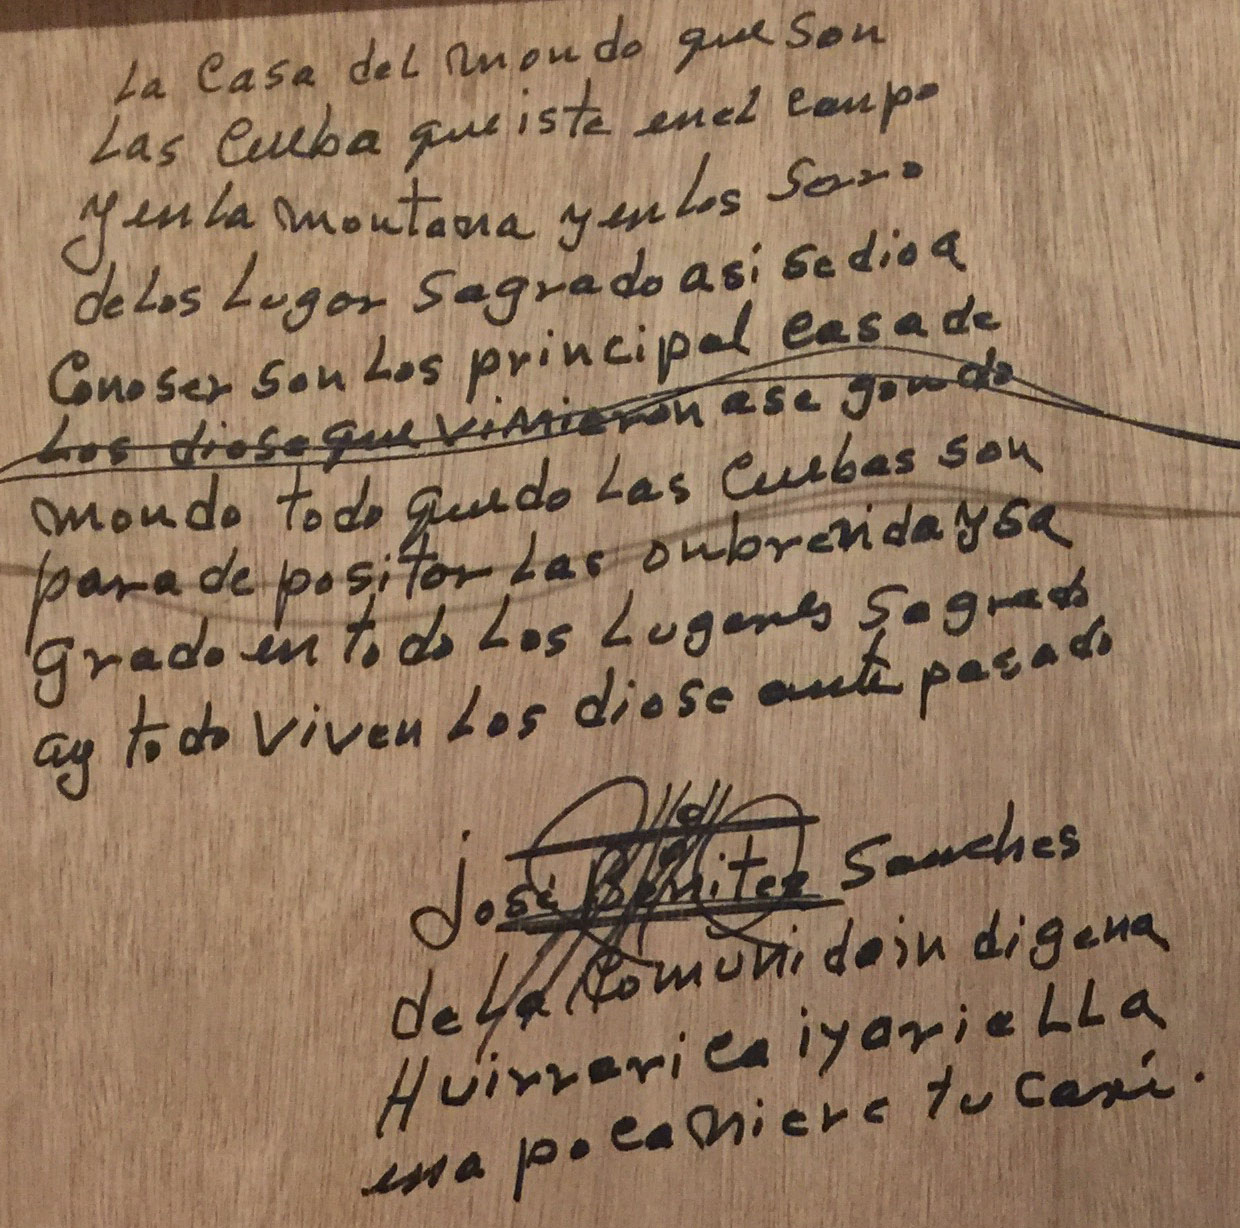 La Casa del mondo que son
Las Cueba que iste en el canpo
y en La montana y en Los Serro
de Los Lugar Sagrado asi se dio a
Conoser son Los principal casa de
Los diose que vinieron a se gondo
mondo todo quedo Las Cuebas son
para de positar Las ya sa
grado en todo Los Lugares Sagrado
ay todo viven Los diose ante pasado
José Benitez Sanches
de La Comunida in digena
Huirrarica iyarieLLa